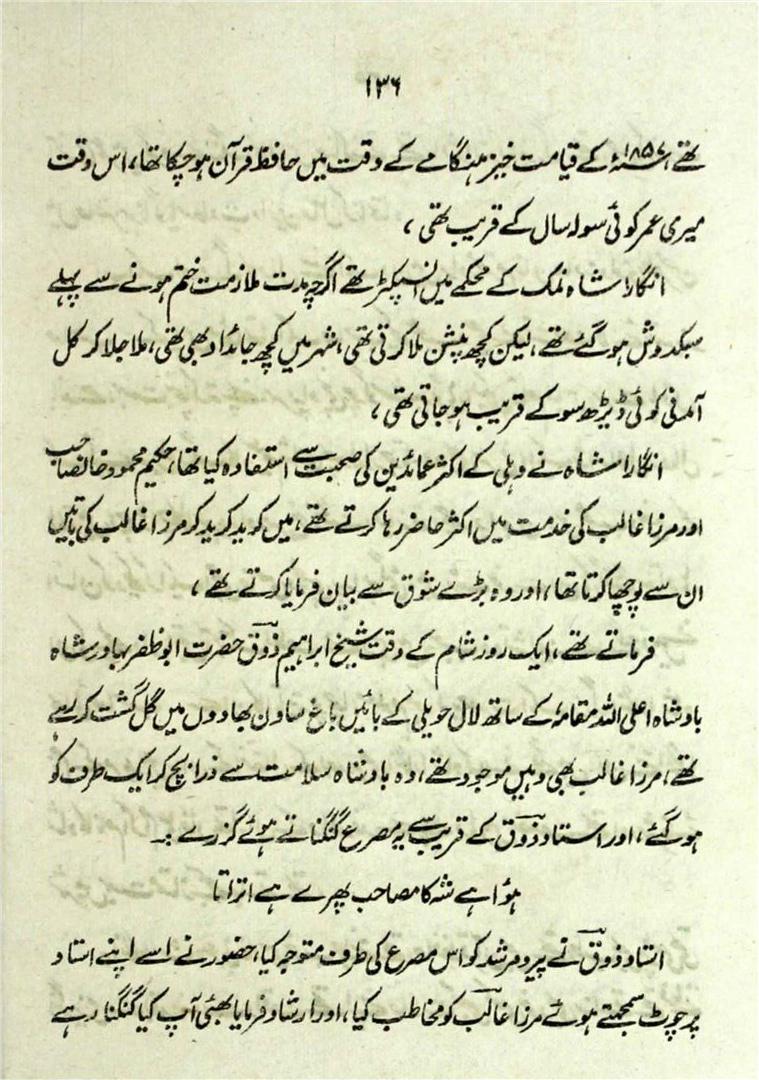 ۱۳۶
تھے، ۱۸۵۷ء؁ کے قیامت خیز ہنگامے کے وقت میں حافظ قرآن ہو چکا تھا، اس وقت
میری عمر کوئی سولہ سال کے قریب تھی ،
انگارا شاہ نمک کے محکمے میں انسپکٹر تھے اگرچہ مدت ملازمت ختم ہونے سے پہلے
سبکدوش ہو گئے تھے ، لیکن کچھ پنشن ملا کرتی تھی، شہر میں کچھ جائداد بھی تھی، ملا جلا کر کل
آمدنی کوئی ڈیڑھ سو کے قریب ہو جاتی تھی ،
انگارا شاہ نے دہلی کے اکثر عمائدین کی صحبت سے استفادہ کیا تھا، حکیم محمود خانصاحب
اور مرزا غالب کی خدمت میں اکثر حاضر رہا کرتے تھے، میں کرید کرید کر مرزا غالب کی باتیں
ان سے پوچھا کرتا تھا، اور وہ بڑے شوق سے بیان فرمایا کرتے تھے ،
فرماتے تھے ، ایک روز شام کے وقت شیخ ابراہیم ذوق حضرت ابو ظفر بہادر شاہ
بادشاہ اعلی اللہ مقامہٗ کے ساتھ لال حویلی کے بائیں باغ ساون بھادوں میں گل گشت کر رہے
تھے ، مرزا غالب بھی وہیں موجود تھے، وہ بادشاہ سلامت سے ذرا بچ کر ایک طرف کو
ہو گئے، اور استاد ذوق کے قریب سے یہ مصرع گنگناتے ہوئے گزرے :-
ہوا ہے شہ کا مصاحب پھرے ہے اتراتا
استاد ذوق نے پیر و مرشد کو اس مصرع کی طرف متوجہ کیا، حضور نے اسے اپنے استاد
پر چوٹ سمجھتے ہوئے مرزا غالب کو مخاطب کیا، اور ارشاد فرمایا بھئی آپ کیا گنگنا رہے